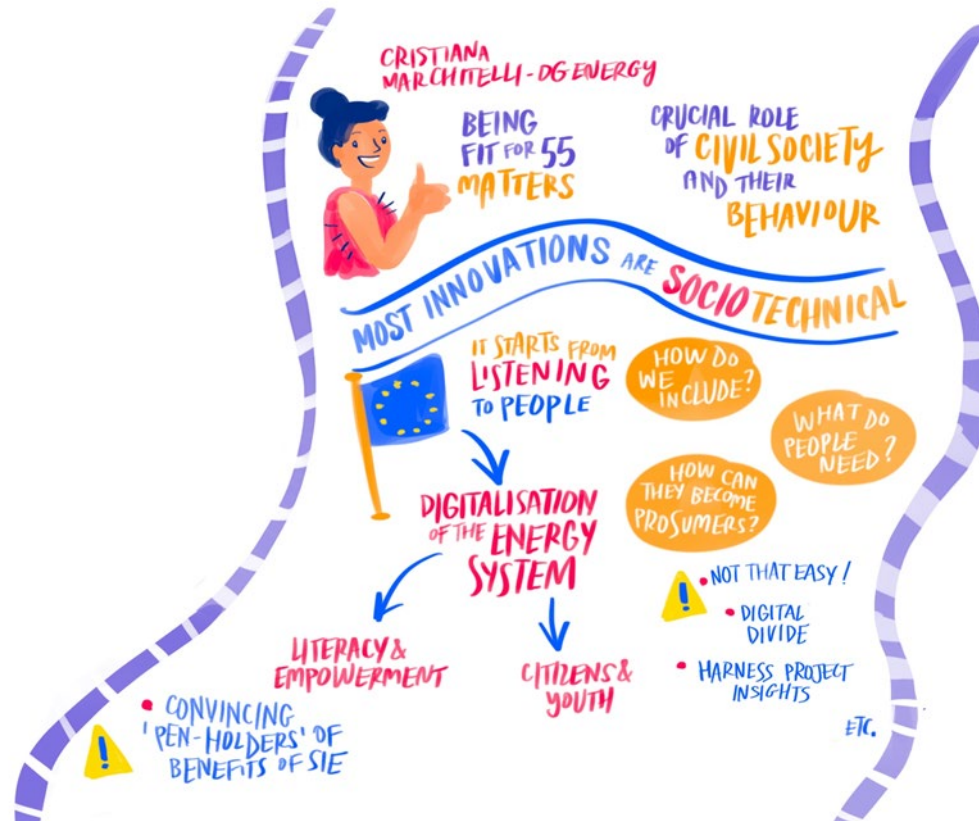 CRISTIANA
MARCHITELLI - DG ENERGY
BEING
FIT FOR 55
MATTERS
CRUCIAL ROLE
OF CIVIL SOCIETY
AND THEIR
BEHAVIOUR
MOST INNOVATIONS ARE SOCIOTECHNICAL
IT STARTS FROM
LISTENING
TO PEOPLE
HOW DO
WE
INCLUDE?
WHAT DO
PEOPLE
NEED?
HOW CAN
THEY BECOME
PROSUMERS?
DIGITALISATION
OF THE ENERGY
SYSTEM
! • NOT THAT EASY!
• DIGITAL
DIVIDE
• HARNESS PROJECT
INSIGHTS
ETC.
LITERACY &
EMPOWERMENT
CITIZENS &
YOUTH
! • CONVINCING
'PEN-HOLDERS' OF
BENEFITS OF SIE